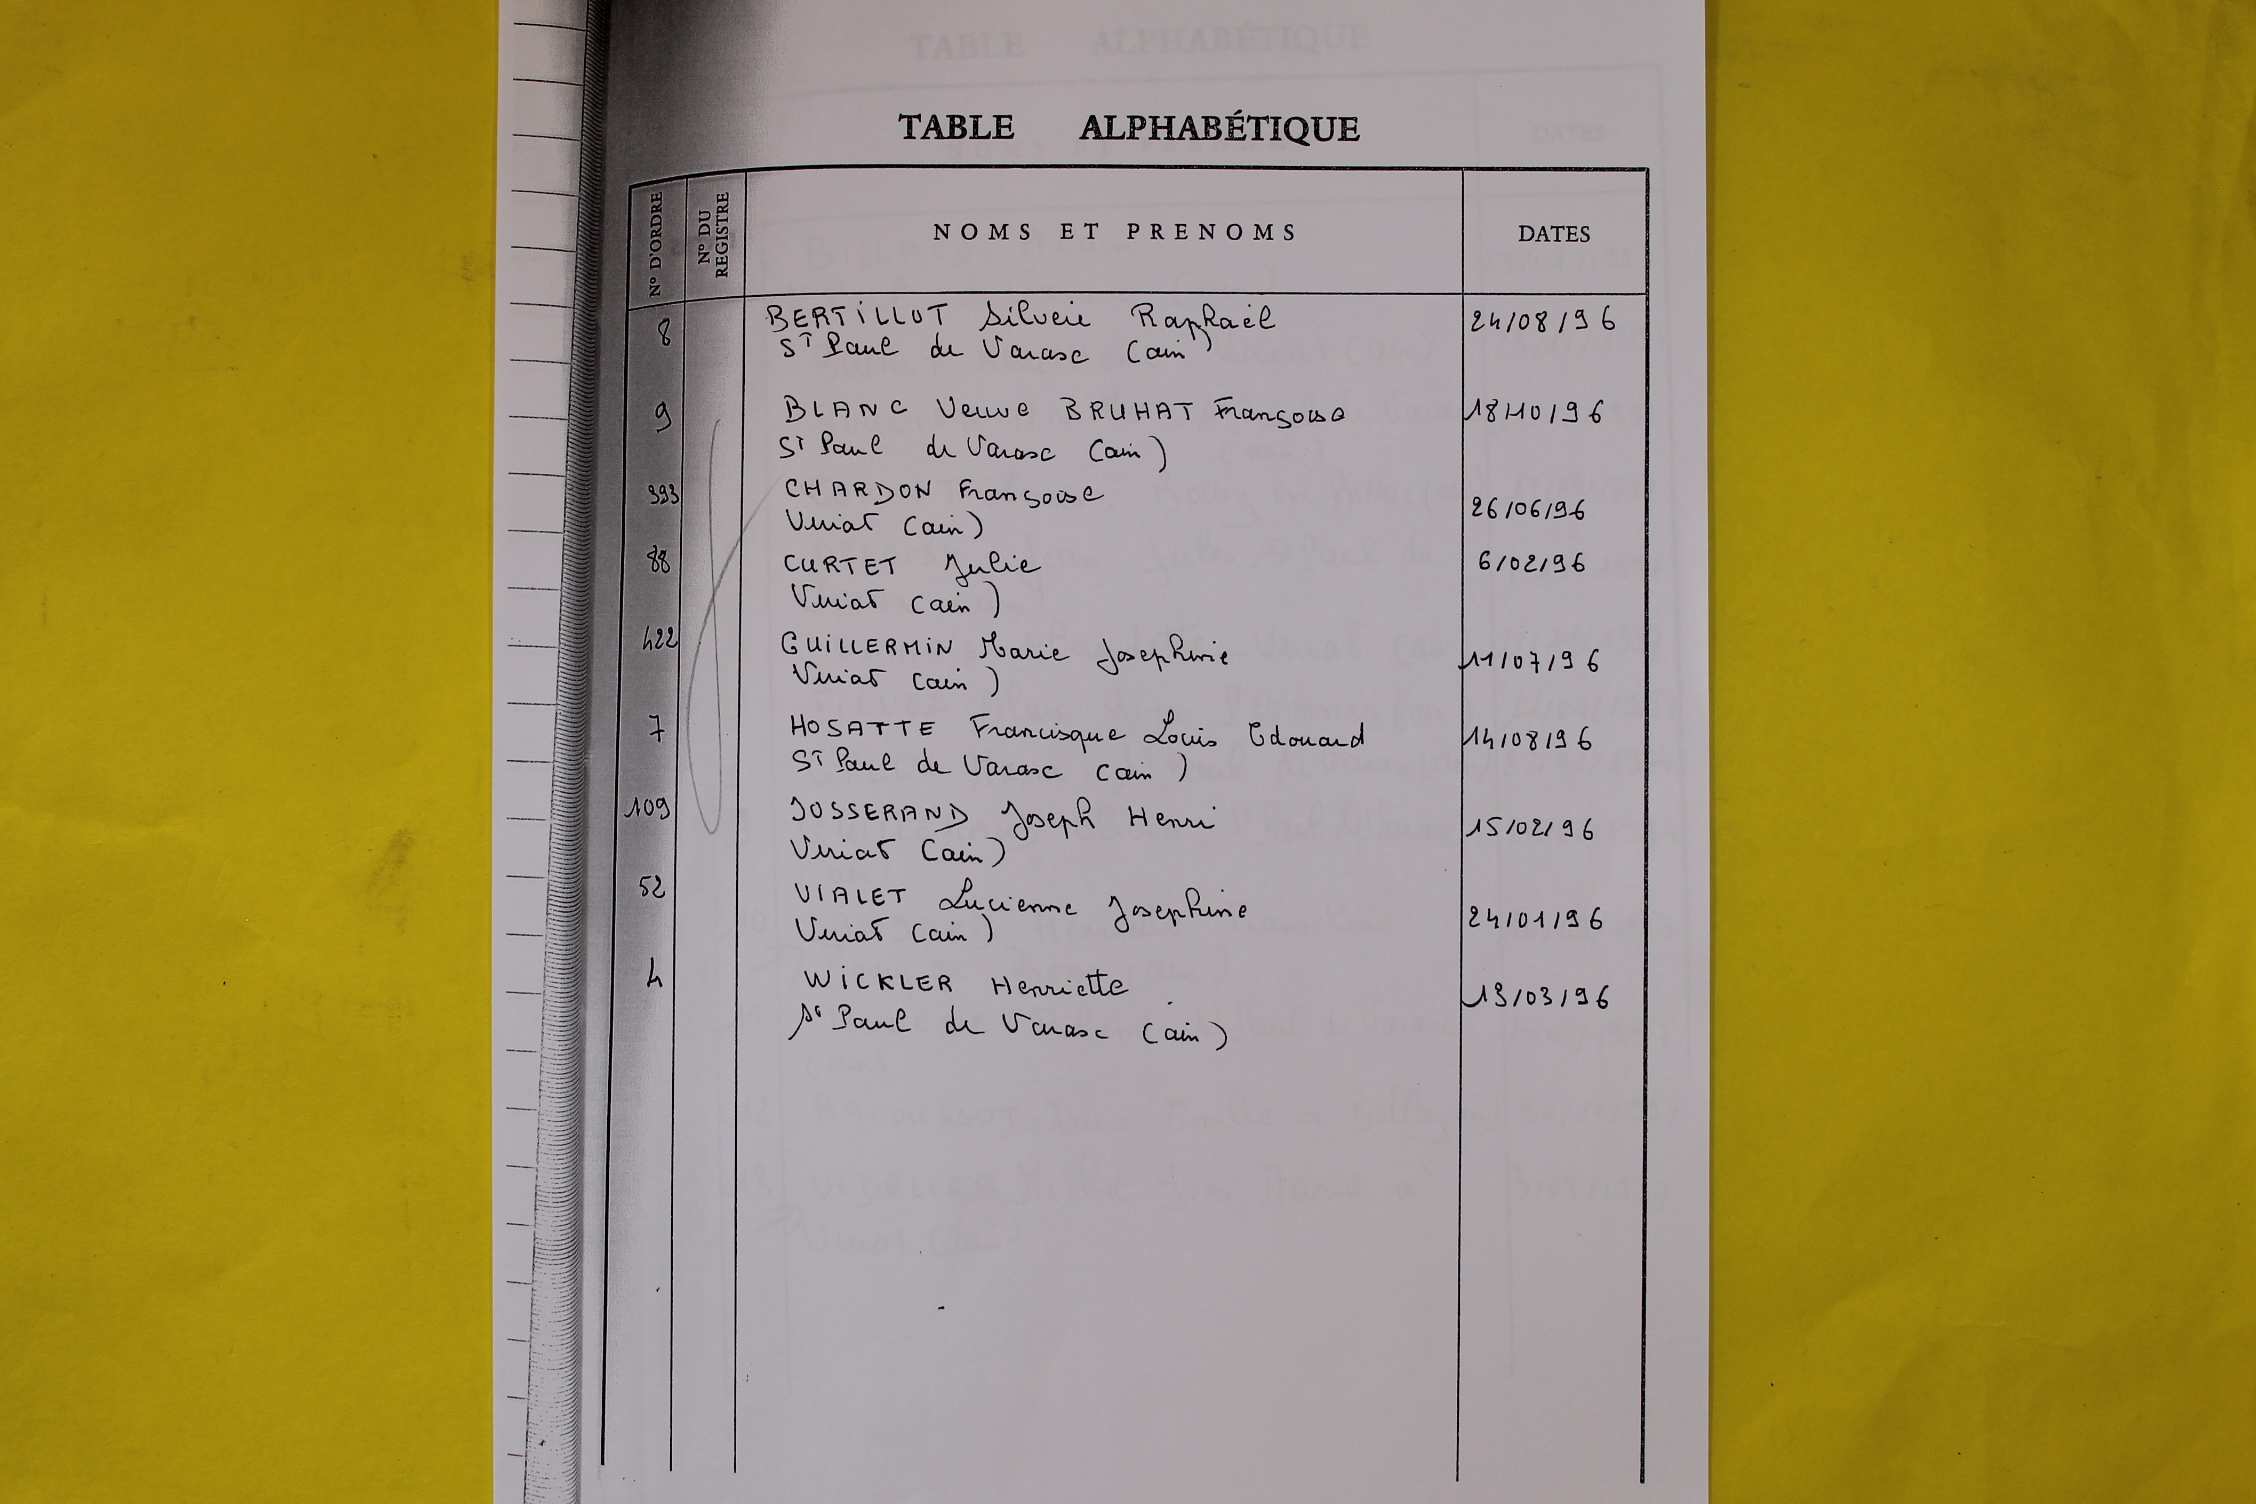 TABLE ALPHABÉTIQUE
N° D'ORDRE N° DU REGISTRE NOMS ET PRENOMS DATES
8 BERTILLOT Silveie Raphaël 24/08/96
St Paul de Varasc (ain)
9 BLANC Veuve BRUHAT Françoise 18/10/96
St Paul de Varasc (ain)
393 CHARDON Françoise 26/06/96
Viriat (ain)
88 CURTET Julie 6/02/96
Viriat (ain)
422 GUILLERMIN Marie Josephine 11/07/96
Viriat (ain)
7 HOSATTE Francisque Louis Edouard 14/08/96
St Paul de Varasc (ain)
109 JOSSERAND Joseph Henri 15/02/96
Viriat (ain)
52 VIALET Lucienne Josephine 24/01/96
Viriat (ain)
4 WICKLER Henriette 13/03/96
St Paul de Varasc (ain)